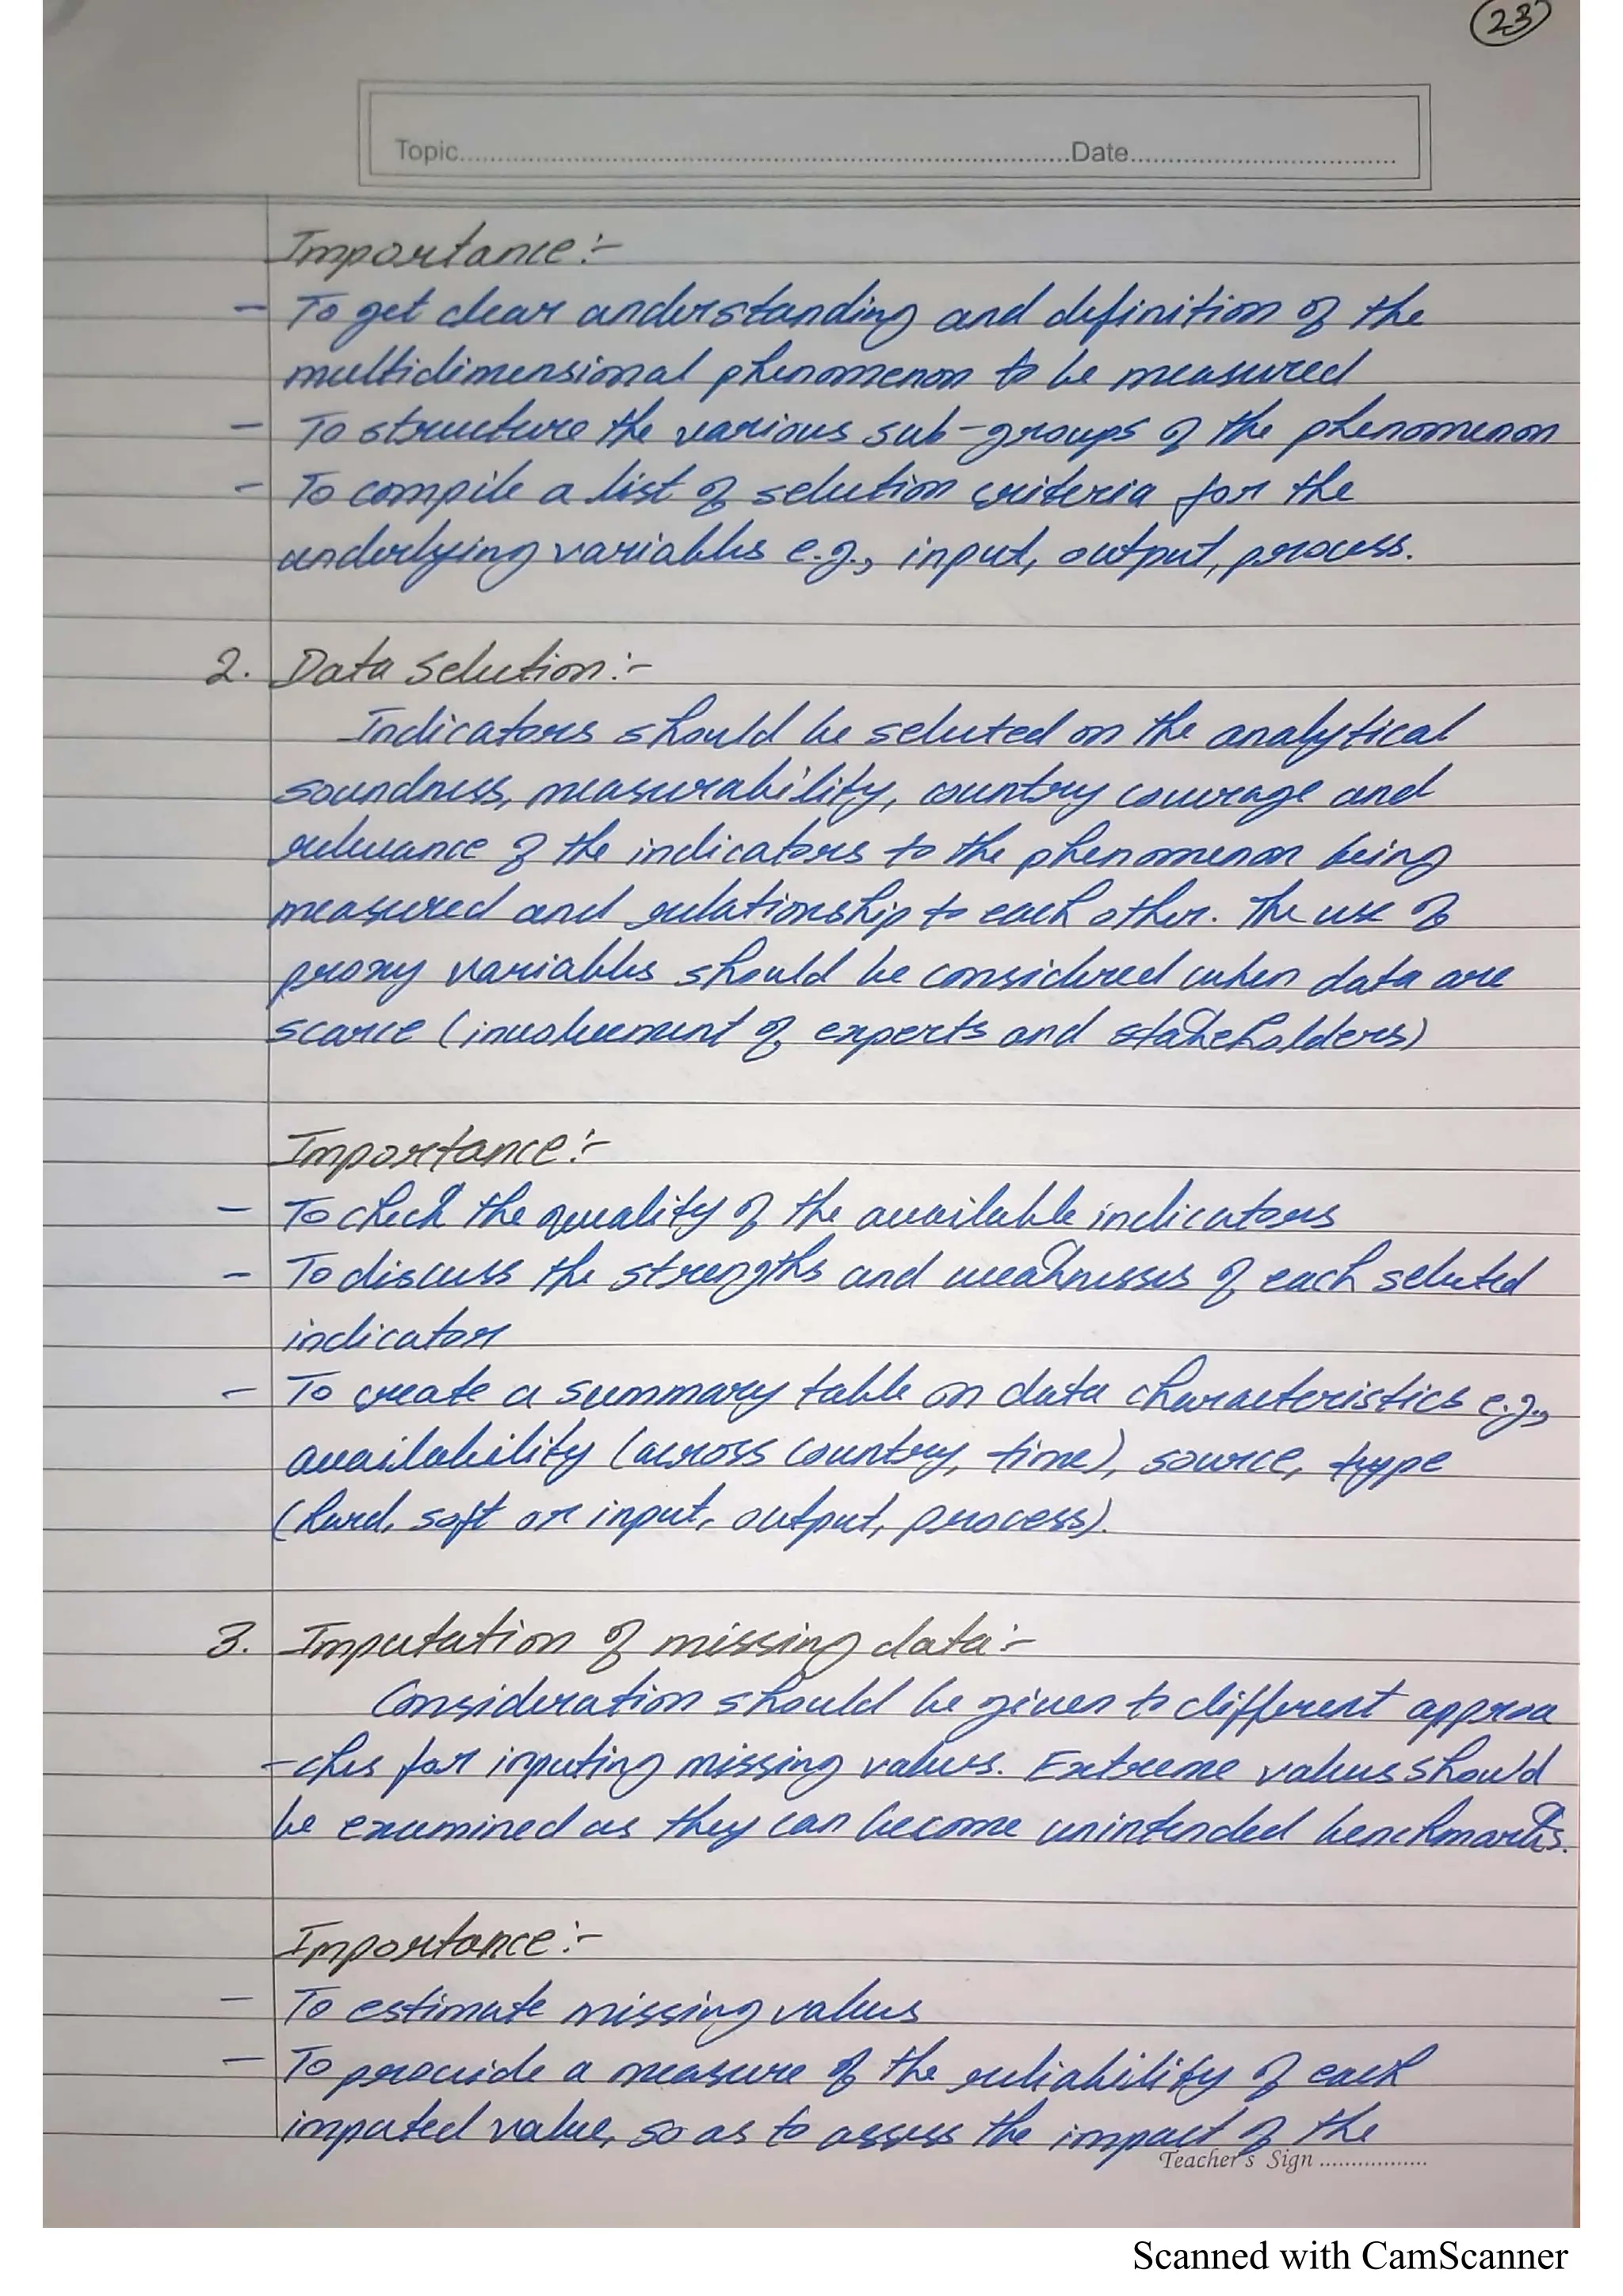 23
Topic.....Date.....
Importance:-
- To get clear understanding and definition of the
multidimensional phenomenon to be measured
- To structure the various sub-groups of the phenomenon
- To compile a list of selection criteria for the
underlying variables e.g., input, output, process.
2. Data Selection:-
Indicators should be selected on the analytical
soundness, measurability, country coverage and
relevance of the indicators to the phenomenon being
measured and relationship to each other. The use of
proxy variables should be considered when data are
scarce (involvement of experts and stakeholders)
Importance:-
- To check the quality of the available indicators
- To discuss the strengths and weaknesses of each selected
indicator
- To create a summary table on data characteristics e.g.,
availability (across country, time), source, type
(hard, soft or input, output, process).
3. Imputation of missing data:-
Consideration should be given to different approa
-ches for inputing missing values. Extreme values should
be examined as they can become unintended benchmarks.
Importance:-
- To estimate missing values
- To provide a measure of the reliability of each
imputed value, so as to assess the impact of the
Teacher's Sign .....
Scanned with CamScanner